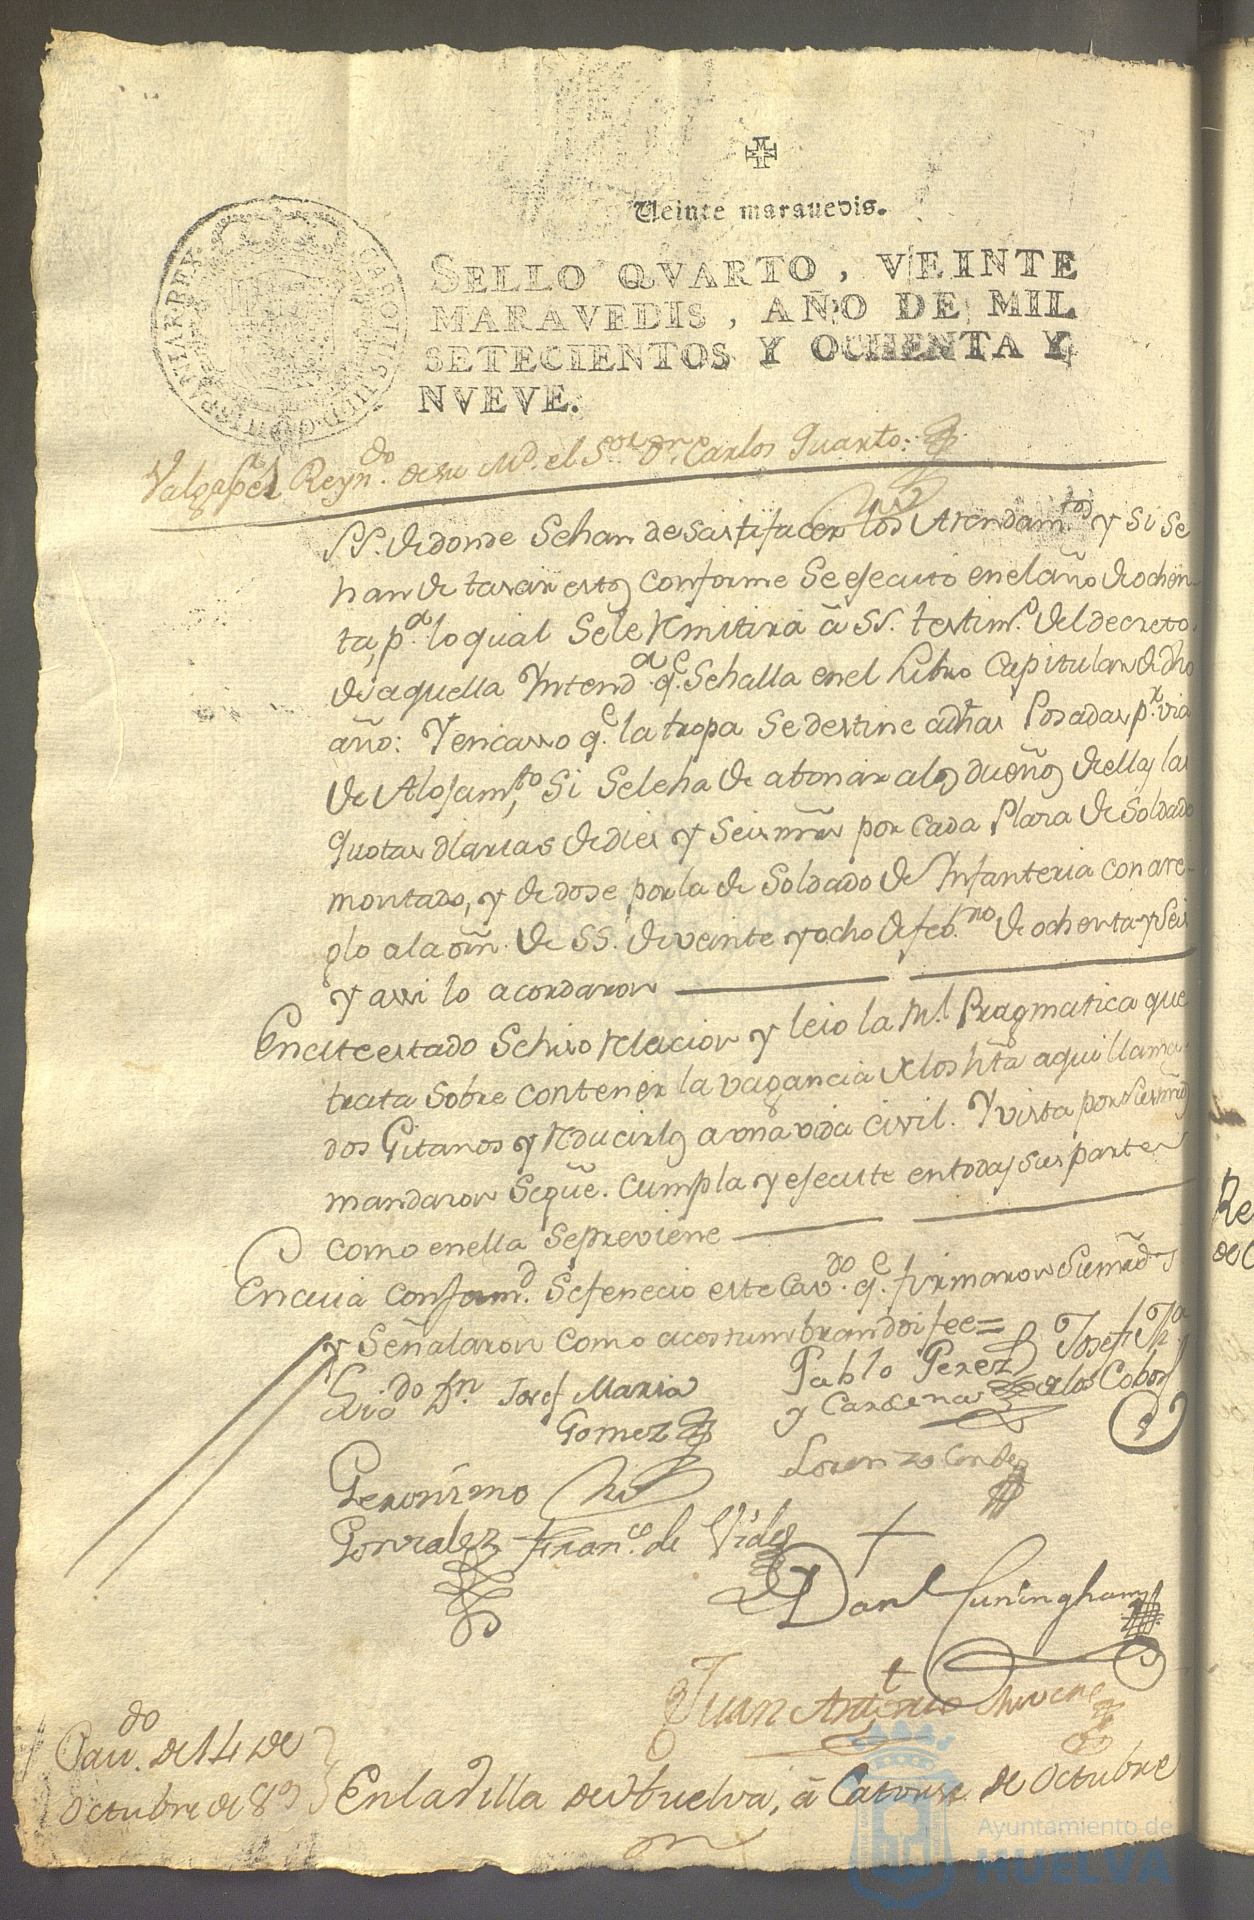 Veinte marauedis.
SELLO QVARTO, VEINTE
MARAVEDIS, AÑO DE MIL
SETECIENTOS Y OCHENTA Y
NVEVE.
CAROLUS III D G HISPANIAR REX
Valga pa el Reyndo de su Md. el Sor Dn Carlos Quarto.
SS. de donde se han de sastifacer los Arendamtos y si se
han de tasar estos conforme se ejecuto en el año de ochen-
ta, pa lo qual se le remitirá á SS. testimo del decreto
de aquella Yntenda qe se halla en el Libro Capitular de dho
año: Y en casso qe la tropa se destine a dhas Posadas pr via
de Alojamto, si se le ha de abonar a los dueños de ellas las
quotas diarias de dies y seis mrs por cada Plaza de Soldado
montado, y de dose por la de Soldado de Ynfanteria con are-
glo a la orn de SS. de veinte y ocho de febro de ochenta y seis
y assi lo acordaron
En este estado se hiso relacion y leio la Rl Pragmatica que
trata sobre contener la vagancia de los hta aqui llama-
dos Gitanos y reducirlos a una vida civil. Y vista por sus mrds
mandaron se que. cumpla y ejecute en todas sus partes
como en ella se previene
En cuia conformd se fenecio este Cavdo qe firmaron sus mrds
y señalaron como acostumbran doi fee=
Lizdo Dn Josef Maria
Gomez
Pablo Perez
y Cardenas
Josef
de los Cobos
Geronimo
Gonzalez
Lorenzo Conde
Franco de Vides
Danl Cuningham
Juan Antonio
Cavdo de 14 de
Octubre de 89
En la Villa de Huelva, á Catorse de Octubre
Re
de C
Ayuntamiento de
HUELVA